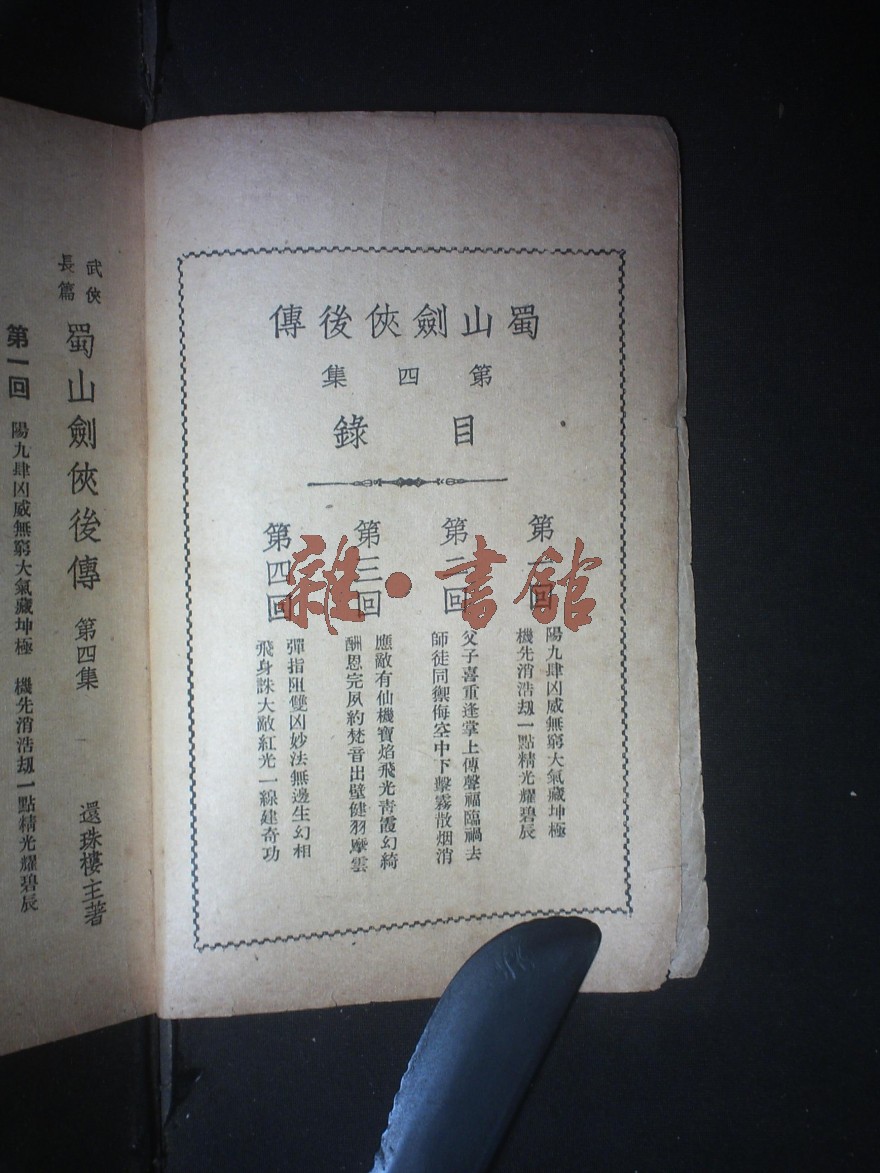 蜀山劍俠後傳
第四集
目錄
第一回
陽九肆凶威無窮大氣藏坤極
機先消浩刼一點精光耀碧辰
第二回
父子喜重逢掌上傳聲福臨禍去
師徒同禦侮空中下擊霧散烟消
第三回
應敵有仙機寶焰飛光青霞幻綺
酬恩完夙約梵音出壁健羽摩雲
第四回
彈指阻雙凶妙法無邊生幻相
飛身誅大敵紅光一線建奇功
雜·書館
武俠
長篇
蜀山劍俠後傳 第四集 還珠樓主著
第一回 陽九肆凶威無窮大氣藏坤極 機先消浩刼一點精光耀碧辰